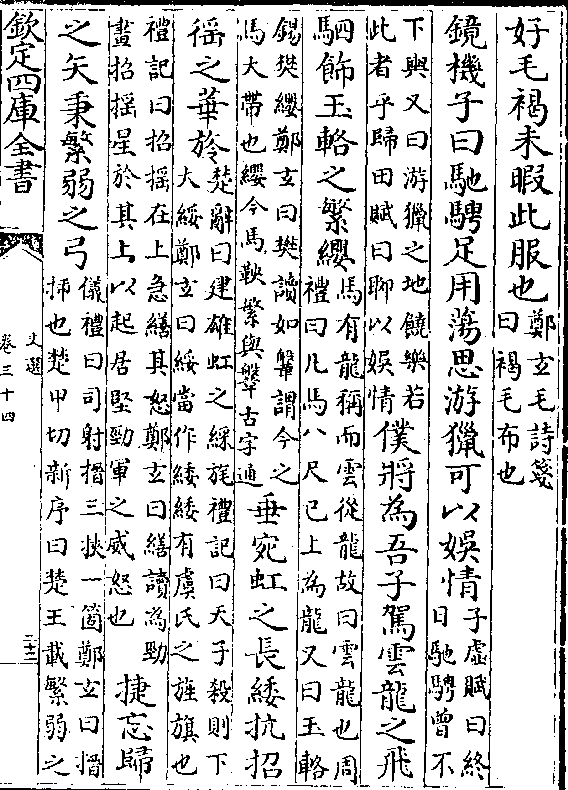 好毛褐未暇此服也
鄭玄毛詩箋
曰褐毛布也
鏡機子曰馳騁足用蕩思游獵可以娛情
子虛賦曰終
日馳騁曾不
下輿又曰游獵之地饒樂若
此者乎歸田賦曰聊以娛情
僕將為吾子駕雲龍之飛
駟飾玉輅之繁纓
馬有龍稱而雲從龍故曰雲龍也周
禮曰凡馬八尺已上為龍又曰玉輅
錫樊纓鄭玄曰樊讀如鞶謂今之
馬大帶也纓今馬鞅繁與鞶古字通
垂宛虹之長緌抗招
徭之華旍
楚辭曰建雄虹之綵旄禮記曰天子殺則下
大綏鄭玄曰綏當作緌緌有虞氏之旌旗也
禮記曰招摇在上急繕其怒鄭玄曰繕讀為勁
畫招摇星於其上以起居堅勁軍之威怒也
捷忘歸
之矢秉繁弱之弓
儀禮曰司射搢三挾一箇鄭玄曰搢
揷也楚甲切新序曰楚王載繁弱之
欽定四庫全書
文選
卷三十四